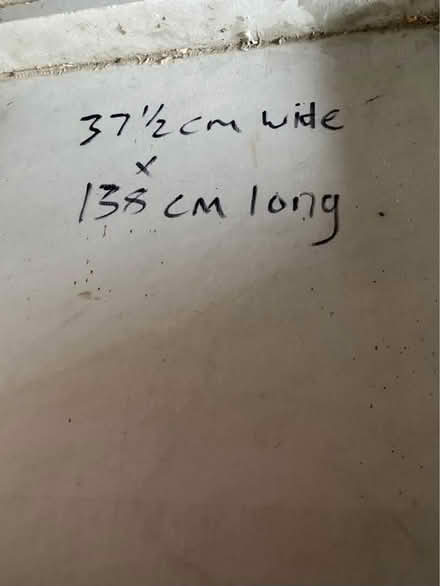 37 1/2 cm wide
x
138 cm long